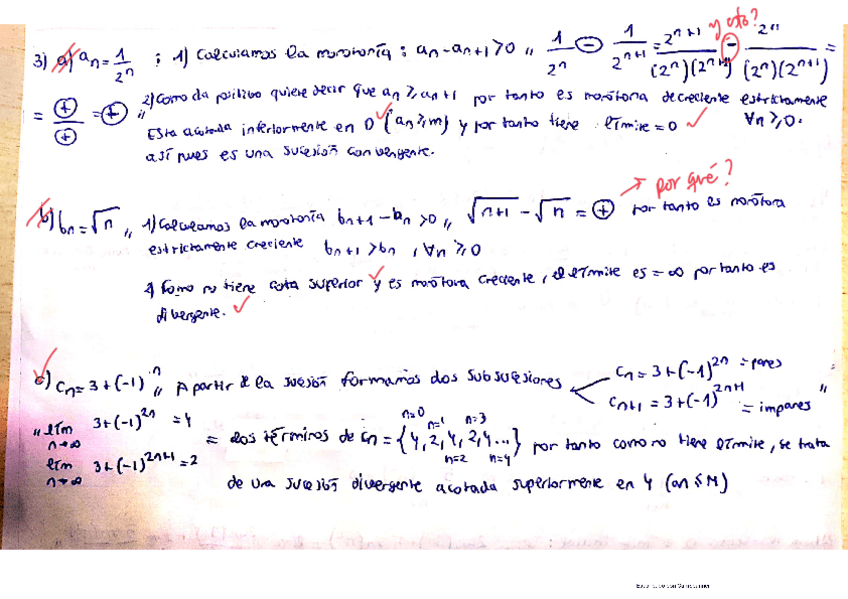 y esto?
3) a) an = 1/2^n ; 1) Calculamos la monotonía : an - an+1 > 0 ,, 1/2^n - 1/2^(n+1) = 2^(n+1)/((2^n)(2^(n+1))) - 2^n/((2^n)(2^(n+1))) =
= +/+ = + ,, 2) Como da positivo quiere decir que an ≥ an+1 por tanto es monótona decreciente estrictamente ∀n ≥ 0.
Esta acotada inferiormente en 0 (an ≥ m) y por tanto tiene límite = 0
así pues es una sucesión convergente.
→ por qué?
b) bn = √n ,, 1) Calculamos la monotonía bn+1 - bn > 0 ,, √n+1 - √n = + por tanto es monótona
estrictamente creciente bn+1 > bn , ∀n ≥ 0
2) Como no tiene cota superior y es monótona creciente, el límite es = ∞ por tanto es
divergente.
c) cn = 3 + (-1)^n ,, A partir de la sucesión formamos dos subsucesiones
cn = 3 + (-1)^2n = pares
cn+1 = 3 + (-1)^(2n+1) = impares ,,
,, lím n→∞ 3 + (-1)^2n = 4
lím n→∞ 3 + (-1)^(2n+1) = 2
n=0 n=1 n=3
= los términos de cn = {4, 2, 4, 2, 4 ...} por tanto como no tiene límite, se trata
n=2 n=4
de una sucesión divergente acotada superiormente en 4 (an ≤ M)